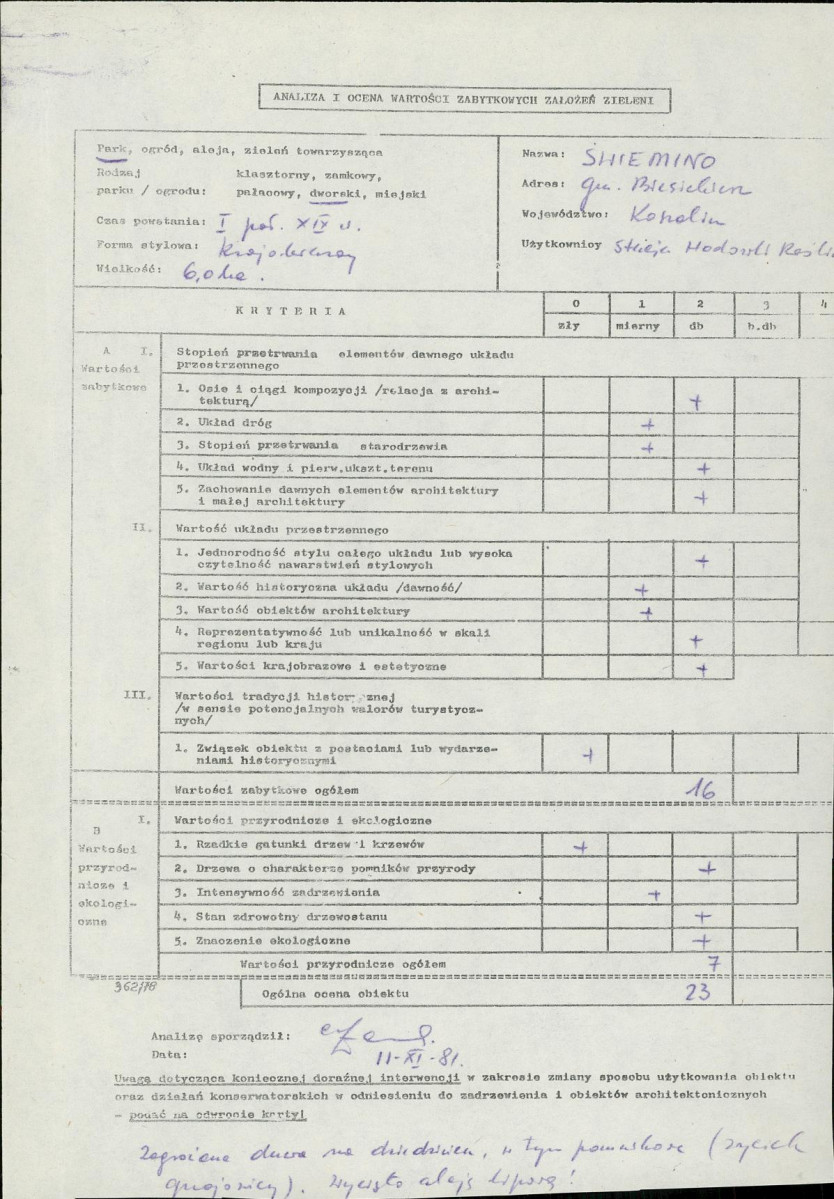 ANALIZA I OCENA WARTOŚCI ZABYTKOWYCH ZAŁOŻEŃ ZIELENI
Park, ogród, aleja, zieleń towarzysząca
Rodzaj klasztorny, zamkowy,
parku / ogrodu: pałacowy, dworski, miejski
Czas powstania: I poł. XIX w.
Forma stylowa: krajobrazowy
Wielkość: 6,0 ha.
Nazwa: ŚWIEMINO
Adres: gm. Biesiekierz
Województwo: Koszalin
Użytkownicy Stacja Hodowli Roślin
KRYTERIA
0 1 2 3 4
zły mierny db b.db
A I. Stopień przetrwania elementów dawnego układu
Wartości przestrzennego
zabytkowe
1. Osie i ciągi kompozycji /relacja z archi-
tekturą/ +
2. Układ dróg +
3. Stopień przetrwania starodrzewia +
4. Układ wodny i pierw.ukszt.terenu +
5. Zachowanie dawnych elementów architektury
i małej architektury +
II. Wartość układu przestrzennego
1. Jednorodność stylu całego układu lub wysoka
czytelność nawarstwień stylowych +
2. Wartość historyczna układu /dawność/ +
3. Wartość obiektów architektury +
4. Reprezentatywność lub unikalność w skali
regionu lub kraju +
5. Wartości krajobrazowe i estetyczne +
III. Wartości tradycji historycznej
/w sensie potencjalnych walorów turystycz-
nych/
1. Związek obiektu z postaciami lub wydarze-
niami historycznymi +
Wartości zabytkowe ogółem 16
B I. Wartości przyrodnicze i ekologiczne
Wartości
przyrod-
nicze i
ekologi-
czne
1. Rzadkie gatunki drzew i krzewów +
2. Drzewa o charakterze pomników przyrody +
3. Intensywność zadrzewienia +
4. Stan zdrowotny drzewostanu +
5. Znaczenie ekologiczne +
Wartości przyrodnicze ogółem 7
362/78
Ogólna ocena obiektu 23
Analizę sporządził:
Data: 11-XI-81.
Uwagę dotycząca koniecznej doraźnej interwencji w zakresie zmiany sposobu użytkowania obiektu
oraz działań konserwatorskich w odniesieniu do zadrzewienia i obiektów architektonicznych
- podać na odwrocie karty!
Zagrożone drzewa na dziedzińcu, w tym pomnikowe
gnojowicy). Wycięto aleję lipową!